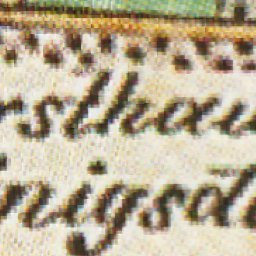 rsthau
inigsd